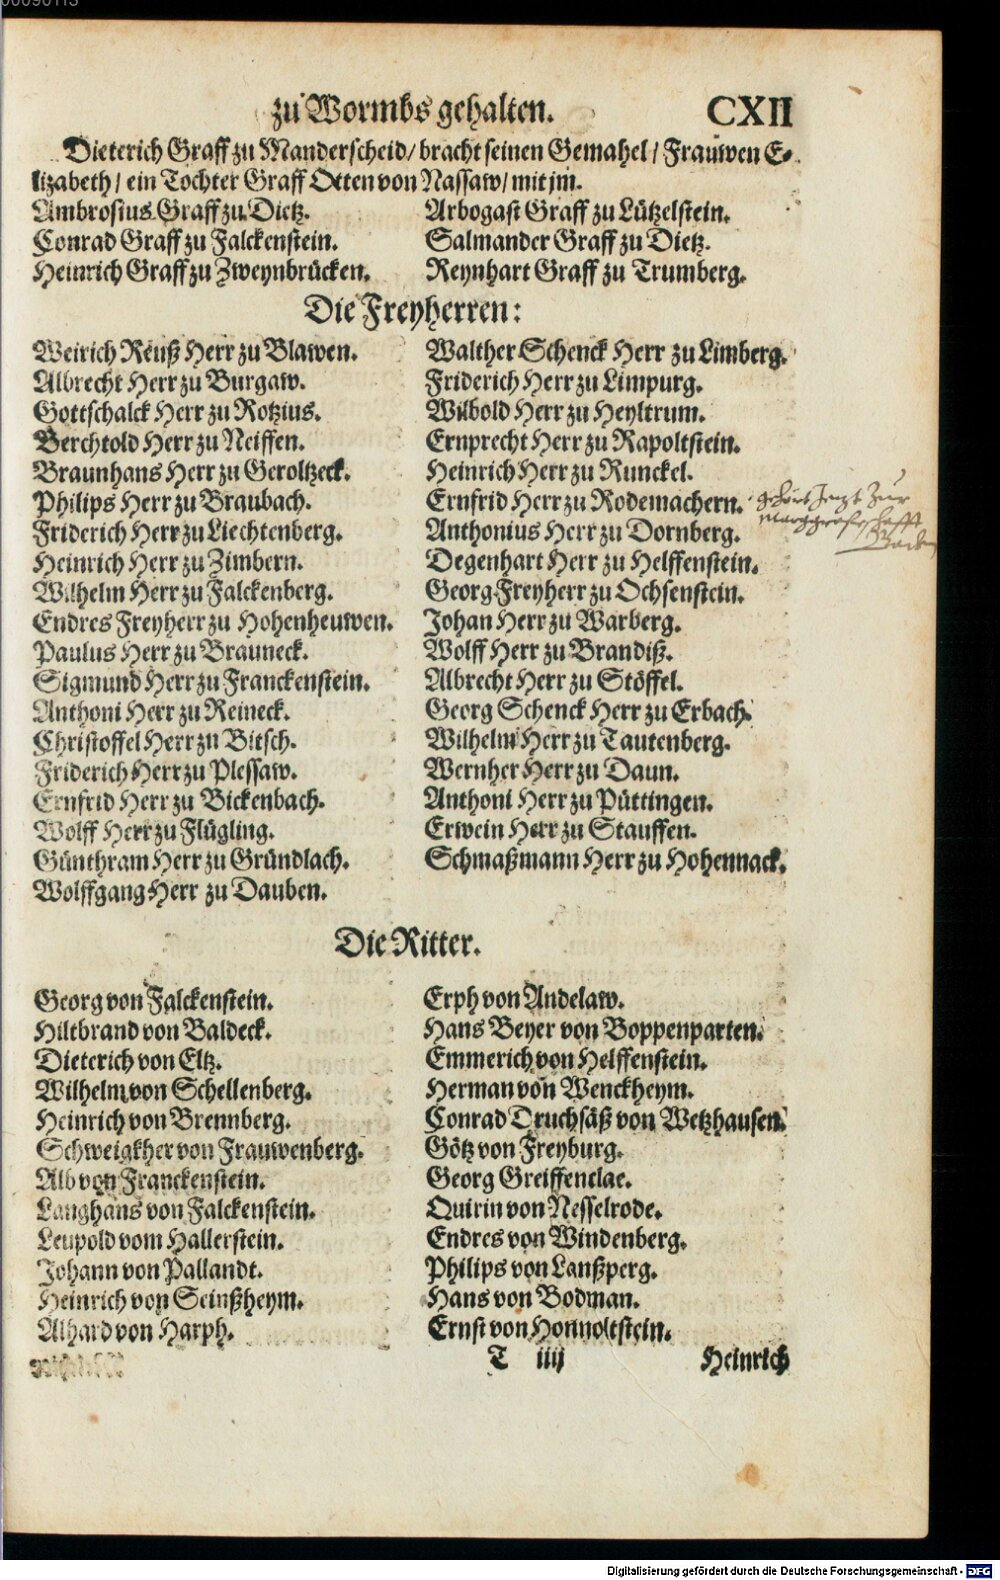 zu Wormbs gehalten. CXII
Dieterich Graff zu Manderscheid/ bracht seinen Gemahel/ Frauwen E-
lizabeth/ ein Tochter Graff Otten von Nassaw/ mit jm.
Ambrosius Graff zu Dietz.
Conrad Graff zu Falckenstein.
Heinrich Graff zu Zweynbrücken.
Arbogast Graff zu Lützelstein.
Salmander Graff zu Dietz.
Reynhart Graff zu Trumberg.
Die Freyherren:
Weirich Reuß Herr zu Blawen.
Albrecht Herr zu Burgaw.
Gottschalck Herr zu Rotzius.
Berchtold Herr zu Neiffen.
Braunhans Herr zu Geroltzeck.
Philips Herr zu Braubach.
Friderich Herr zu Liechtenberg.
Heinrich Herr zu Zimbern.
Wilhelm Herr zu Falckenberg.
Endres Freyherr zu Hohenheuwen.
Paulus Herr zu Brauneck.
Sigmund Herr zu Franckenstein.
Anthoni Herr zu Reineck.
Christoffel Herr zu Bitsch.
Friderich Herr zu Plessaw.
Ernfrid Herr zu Bickenbach.
Wolff Herr zu Flügling.
Günthram Herr zu Gründlach.
Wolffgang Herr zu Dauben.
Walther Schenck Herr zu Limberg.
Friderich Herr zu Limpurg.
Wilbold Herr zu Heyltrum.
Ernprecht Herr zu Rapoltstein.
Heinrich Herr zu Runckel.
Ernfrid Herr zu Rodemachern.
Anthonius Herr zu Dornberg.
Degenhart Herr zu Helffenstein.
Georg Freyherr zu Ochsenstein.
Johan Herr zu Warberg.
Wolff Herr zu Brandiß.
Albrecht Herr zu Stöffel.
Georg Schenck Herr zu Erbach.
Wilhelm Herr zu Tautenberg.
Wernher Herr zu Daun.
Anthoni Herr zu Püttingen.
Erwein Herr zu Stauffen.
Schmaßmann Herr zu Hohennack.
gehört jetzt zur
Marggrafschafft
Baden
Die Ritter.
Georg von Falckenstein.
Hiltbrand von Baldeck.
Dieterich von Eltz.
Wilhelm von Schellenberg.
Heinrich von Brennberg.
Schweigkher von Frauwenberg.
Alb von Franckenstein.
Langhans von Falckenstein.
Leupold vom Hallerstein.
Johann von Pallandt.
Heinrich von Seinßheym.
Alhard von Harph.
Erph von Andelaw.
Hans Beyer von Boppenparten.
Emmerich von Helffenstein.
Herman von Wenckheym.
Conrad Druchsäß von Wetzhausen.
Götz von Freyburg.
Georg Greiffenclae.
Quirin von Nesselrode.
Endres von Windenberg.
Philips von Lanßperg.
Hans von Bodman.
Ernst von Honnoltstein.
T iiij Heinrich
Digitalisierung gefördert durch die Deutsche Forschungsgemeinschaft - DFG